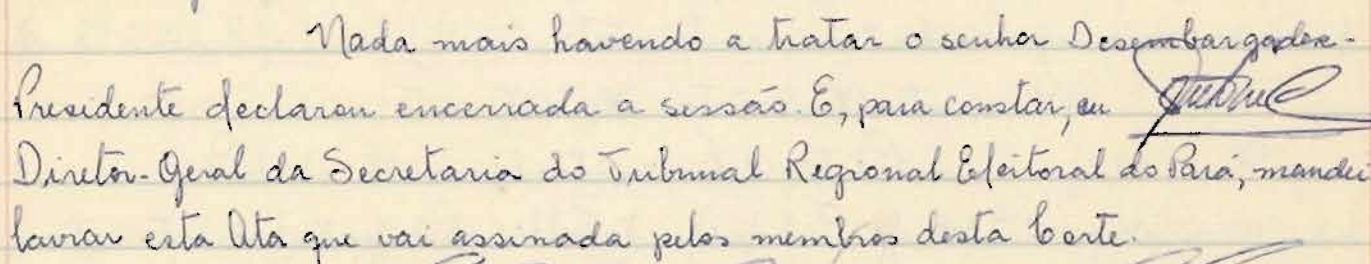 Nada mais havendo a tratar o senhor Desembargador-
Presidente declarou encerrada a sessão. E, para constar, eu
Diretor-Geral da Secretaria do Tribunal Regional Eleitoral do Pará, mandei
lavrar esta Ata que vai assinada pelos membros desta Corte.